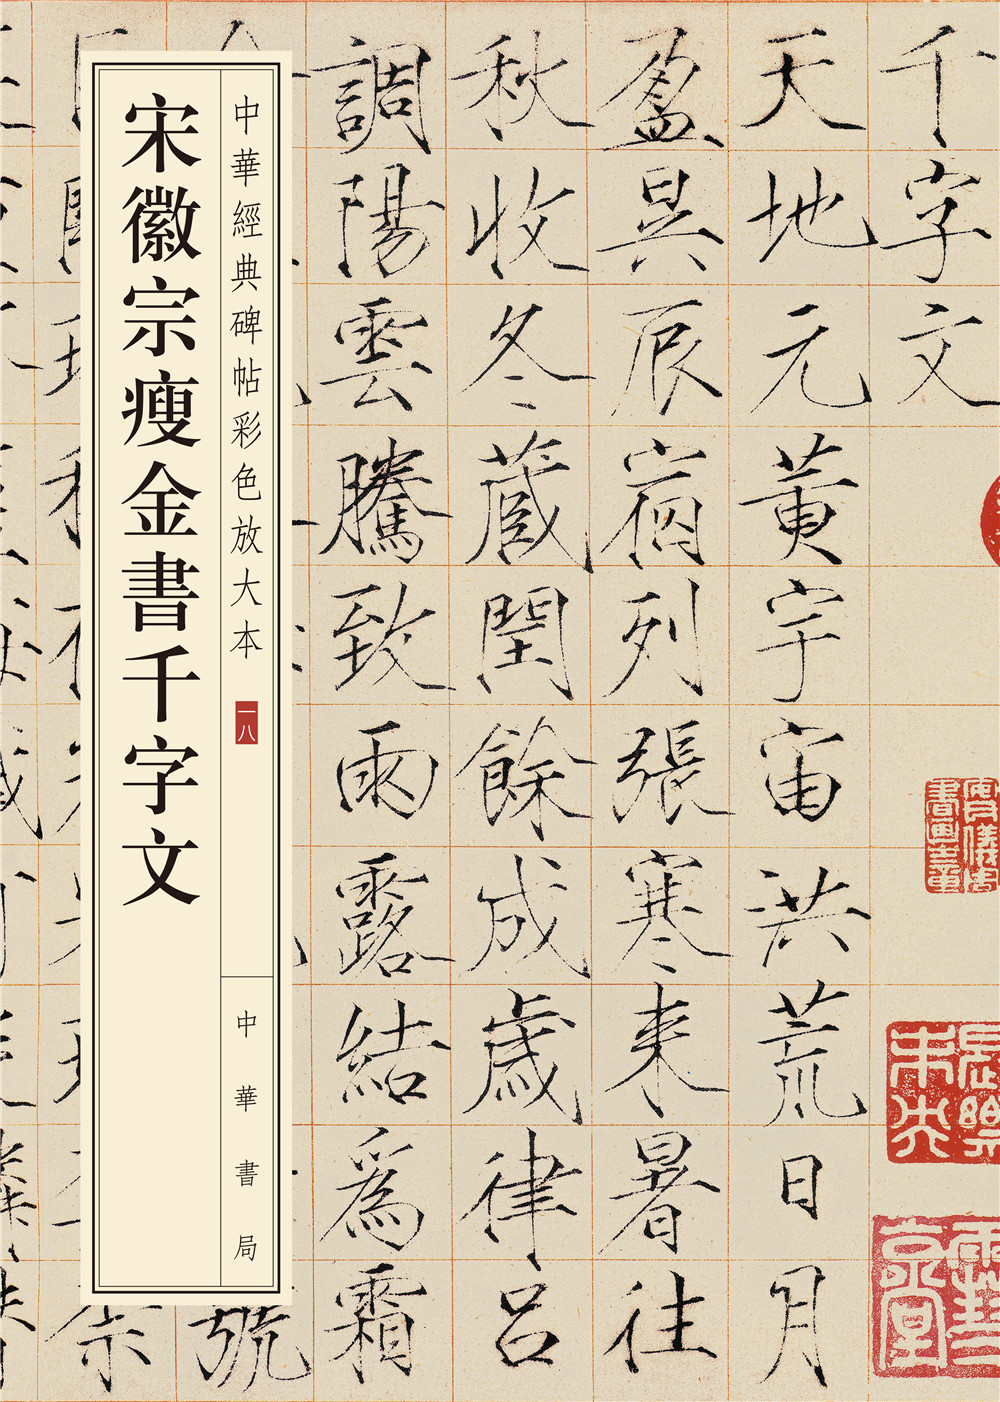 千字文
天地元黄宇宙洪荒日月
盈昃辰宿列張寒来暑往
秋收冬藏閏餘成歲律吕
調陽雲騰致雨露結爲霜
號
中華經典碑帖彩色放大本
一八
中華書局
宋徽宗瘦金書千字文